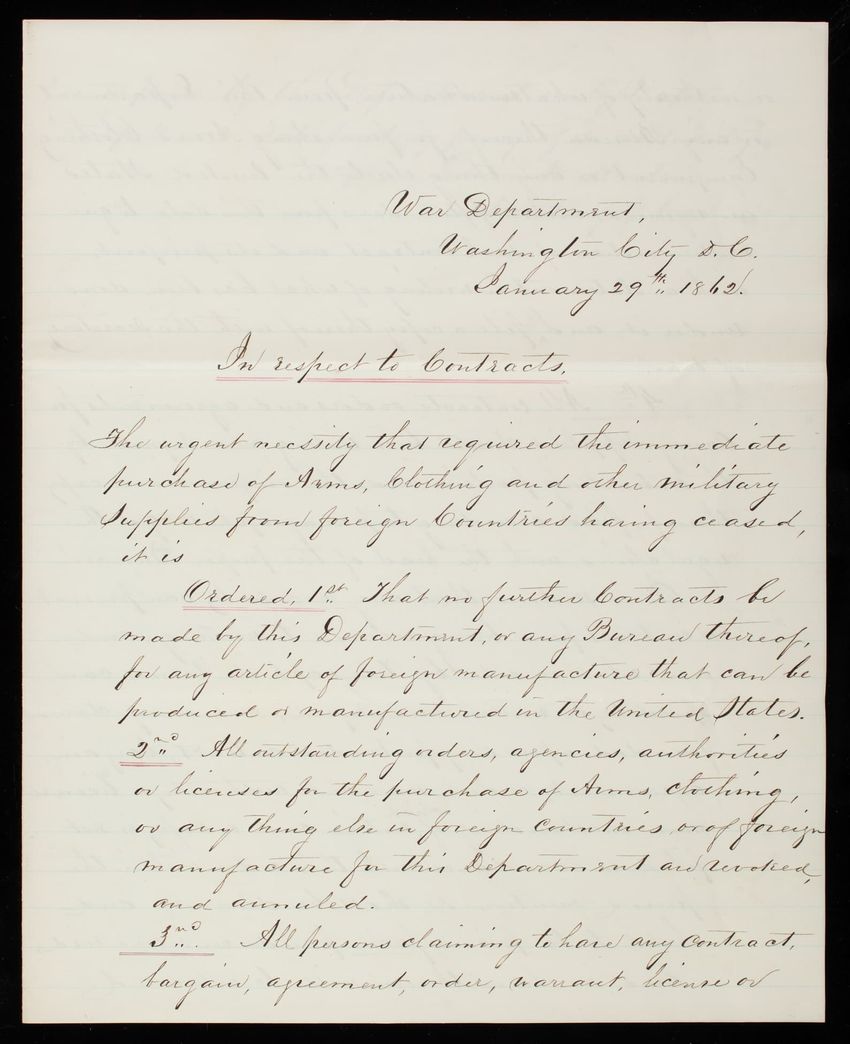 War Department,
Washington City D.C.
January 29th 1862.
In respect to Contracts.
The urgent necssity that required the immediate
purchase of Arms, Clothing and other military
Supplies from foreign Countries having ceased,
it is
Ordered, 1st. That no further Contracts be
made by this Department, or any Bureau thereof,
for any article of foreign manufacture that can be
produced or manufactured in the United States.
2nd All outstanding orders, agencies, authorities
or licenses for the purchase of Arms, clothing,
or any thing else in foreign countries or of foreign
manufacture for this Department are revoked,
and annuled.
3rd. All persons claiming to have any contract,
bargain, agreement, order, warrant, license or